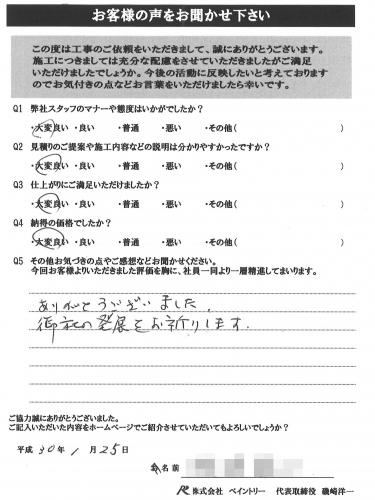 お客様の声をお聞かせ下さい
この度は工事のご依頼をいただきまして、誠にありがとうございます。
施工につきましては充分な配慮をさせていただきましたがご満足
いただけましたでしょうか。今後の活動に反映したいと考えております
のでお気付きの点などお言葉をいただけましたら幸いです。
Q1 弊社スタッフのマナーや態度はいかがでしたか?
・大変良い ・良い ・普通 ・悪い ・その他( )
Q2 見積りのご提案や施工内容などの説明は分かりやすかったですか?
・大変良い ・良い ・普通 ・悪い ・その他( )
Q3 仕上がりにご満足いただけましたか?
・大変良い ・良い ・普通 ・悪い ・その他( )
Q4 納得の価格でしたか?
・大変良い ・良い ・普通 ・悪い ・その他( )
Q5 その他お気づきの点やご感想などお聞かせください。
今回お客様よりいただきました評価を胸に、社員一同より一層精進してまいります。
ありがとうございました.
御社の発展をお祈りします.
ご協力誠にありがとうございました。
ご記入いただいた内容をホームページでご紹介させていただいてもよろしいでしょうか?
平成 30年 1月 25日
名前
株式会社 ペイントリー 代表取締役 磯崎洋一